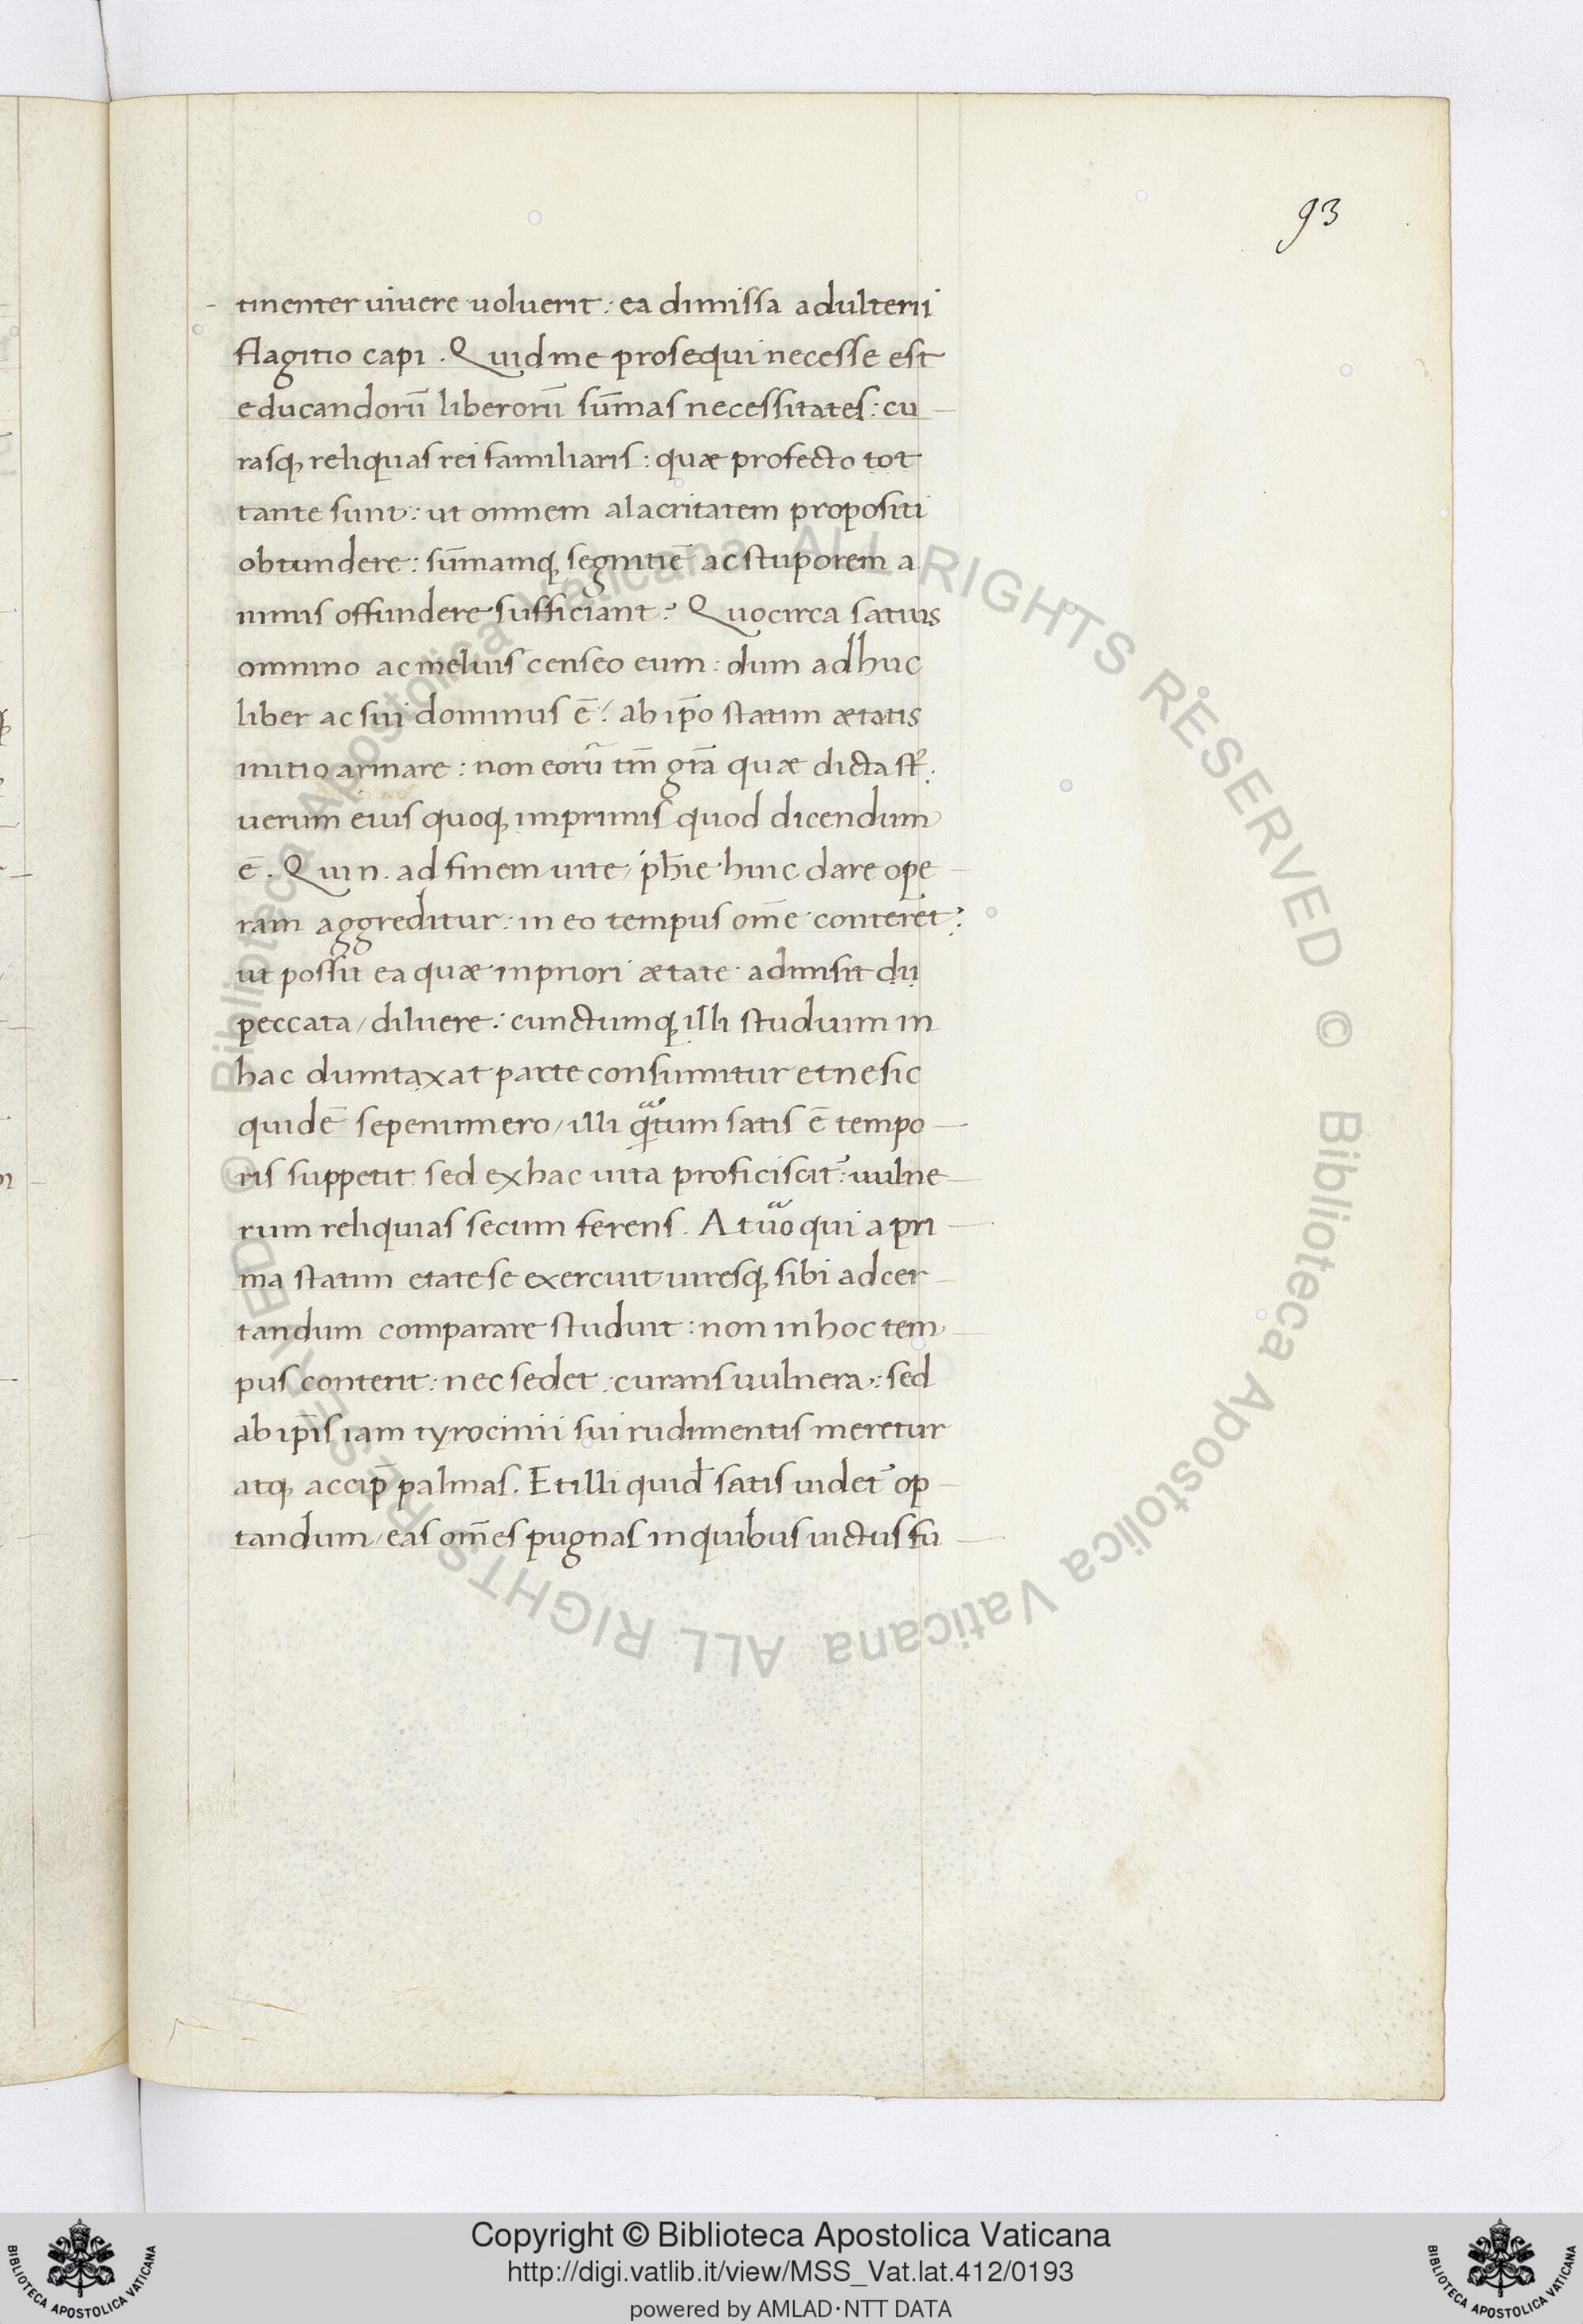 93
tinenter uiuere uoluerit: ea dimissa adulterii
flagitio capi. Quid me prosequi necesse est
educandorū liberorū sūmas necessitates: cu
rasq; reliquas rei familiaris: quæ profecto tot
tante sunt: ut omnem alacritatem propositi
obtundere: sūmamq; segnitiē ac stuporem a
nimis offundere sufficiant? Quocirca satius
omnino ac melius censeo eum: dum adhuc
liber ac sui dominus ē: ab ip̄o statim ætatis
initio armare: non eorū tm̄ gr̄a quæ dicta st̄:
uerum eius quoq; imprimis quod dicendum
ē. Qui n. ad finem uite, ph̄ie huic dare ope
ram aggreditur: in eo tempus om̄e conteret:
ut possit ea quæ in priori ætate admisit diu
peccata, diluere: cunctumq; illi studium in
hac dumtaxat parte consumitur et ne sic
quidē sepenumero, illi q̄tum satis ē tempo
ris suppetit sed ex hac uita proficiscit᷑: uulne
rum reliquias secum ferens. At uo qui a pri
ma statim etate se exercuit uiresq; sibi ad cer
tandum comparare studuit: non in hoc tem
pus conterit: nec sedet: curans uulnera: sed
ab ip̄is iam tyrocinii sui rudimentis meretur
atq; accip̄ palmas. Et illi quid̄ satis uidet᷑ op
tandum, eas om̄es pugnas in quibus uictus fu
© Biblioteca Apostolica Vaticana ALL RIGHTS RESERVED © Biblioteca Apostolica Vaticana ALL RIGHTS RESERVED
Copyright © Biblioteca Apostolica Vaticana
http://digi.vatlib.it/view/MSS_Vat.lat.412/0193
powered by AMLAD·NTT DATA
BIBLIOTECA APOSTOLICA VATICANA
BIBLIOTECA APOSTOLICA VATICANA